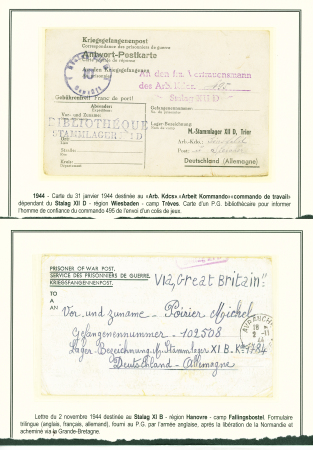 Kriegsgefangenenpost
Correspondance des prisonniers de guerre
Antwort-Postkarte
Carte postale de réponse
An den Kriegsgefangenen
Au prisonnier
An den frz. Vertrauensmann
des Arb. Kdos.
Stalag XII D
Gebührenfrei! Franc de port!
Absender:
Vor- und Zuname:
BIBLIOTHÈQUE
STAMMLAGER XII D
Gefangenennummer:
Lager-Bezeichnung:
M.-Stammlager XII D, Trier
Arb.-Kdo.
Deutschland (Allemagne)
1944 - Carte du 31 janvier 1944 destinée au «Arb. Kdos» «Arbeit Kommando» «commando de travail»
dépendant du Stalag XII D - région Wiesbaden - camp Trèves. Carte d'un P.G. bibliothécaire pour informer
l'homme de confiance du commando 495 de l'envoi d'un colis de jeux.
PRISONER OF WAR POST.
SERVICE DES PRISONNIERS DE GUERRE.
KRIEGSGEFANGENENPOST.
Via "Great Britain"
TO
A
AN
Vor und zuname - Poirier Michel
Gefangenennummer - 102508
Lager-Bezeichnung: M. Stammlager XI B. K 1784
Deutschland - Allemagne
AVRANCHES
18
2 - 11
44
Lettre du 2 novembre 1944 destinée au Stalag XI B - région Hanovre - camp Fallingsbostel. Formulaire
trilingue (anglais, français, allemand), fourni au P.G. par l'armée anglaise, après la libération de la Normandie et
acheminé via la Grande-Bretagne.